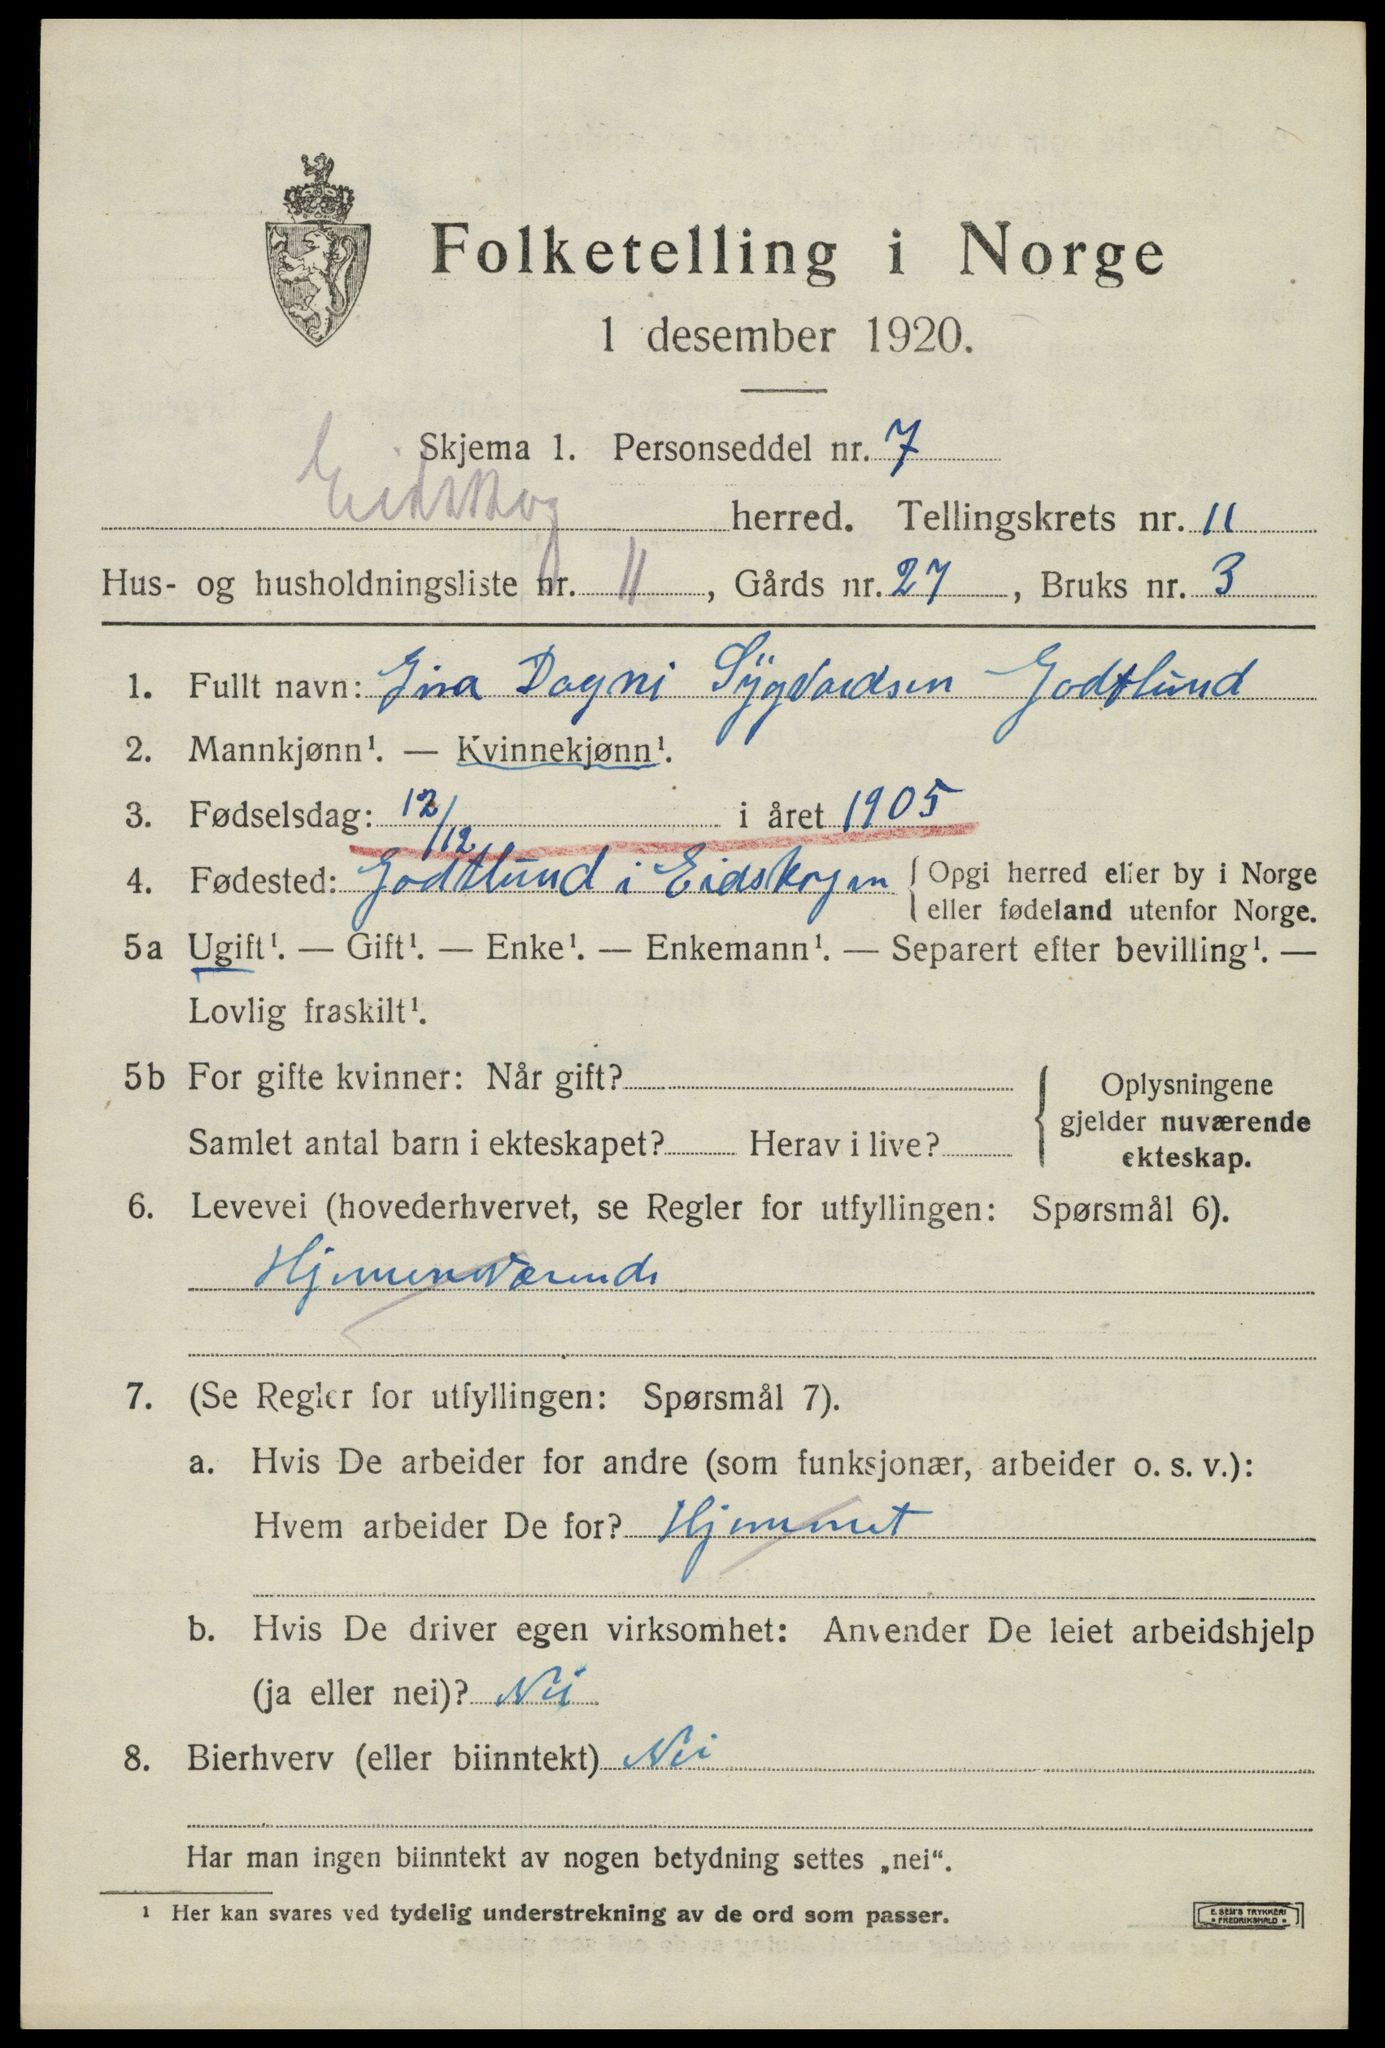 Folketelling i Norge
1 desember 1920.
Skjema 1. Personseddel nr. 7
Eidskog herred. Tellingskrets nr. 11
Hus- og husholdningsliste nr. 11, Gårds nr. 27, Bruks nr. 3
1. Fullt navn: Gina Dagni Sÿgvardsen Godtlund
2. Mannkjønn¹. — Kvinnekjønn¹.
3. Fødselsdag: 12/12 i året 1905
4. Fødested: Godtlund i Eidskogen { Opgi herred eller by i Norge
eller fødeland utenfor Norge.
5a Ugift¹. — Gift¹. — Enke¹. — Enkemann¹. — Separert efter bevilling¹. —
Lovlig fraskilt¹.
5b For gifte kvinner: Når gift?
Samlet antal barn i ekteskapet? Herav i live?
Oplysningene
gjelder nuværende
ekteskap.
6. Levevei (hovederhvervet, se Regler for utfyllingen: Spørsmål 6).
Hjemmeværende
7. (Se Regler for utfyllingen: Spørsmål 7).
a. Hvis De arbeider for andre (som funksjonær, arbeider o. s. v.):
Hvem arbeider De for? Hjemmet
b. Hvis De driver egen virksomhet: Anvender De leiet arbeidshjelp
(ja eller nei)? Nei
8. Bierhverv (eller biinntekt) Nei
Har man ingen biinntekt av nogen betydning settes „nei“.
¹ Her kan svares ved tydelig understrekning av de ord som passer.
E. SEM'S TRYKKERI
FREDRIKSHALD